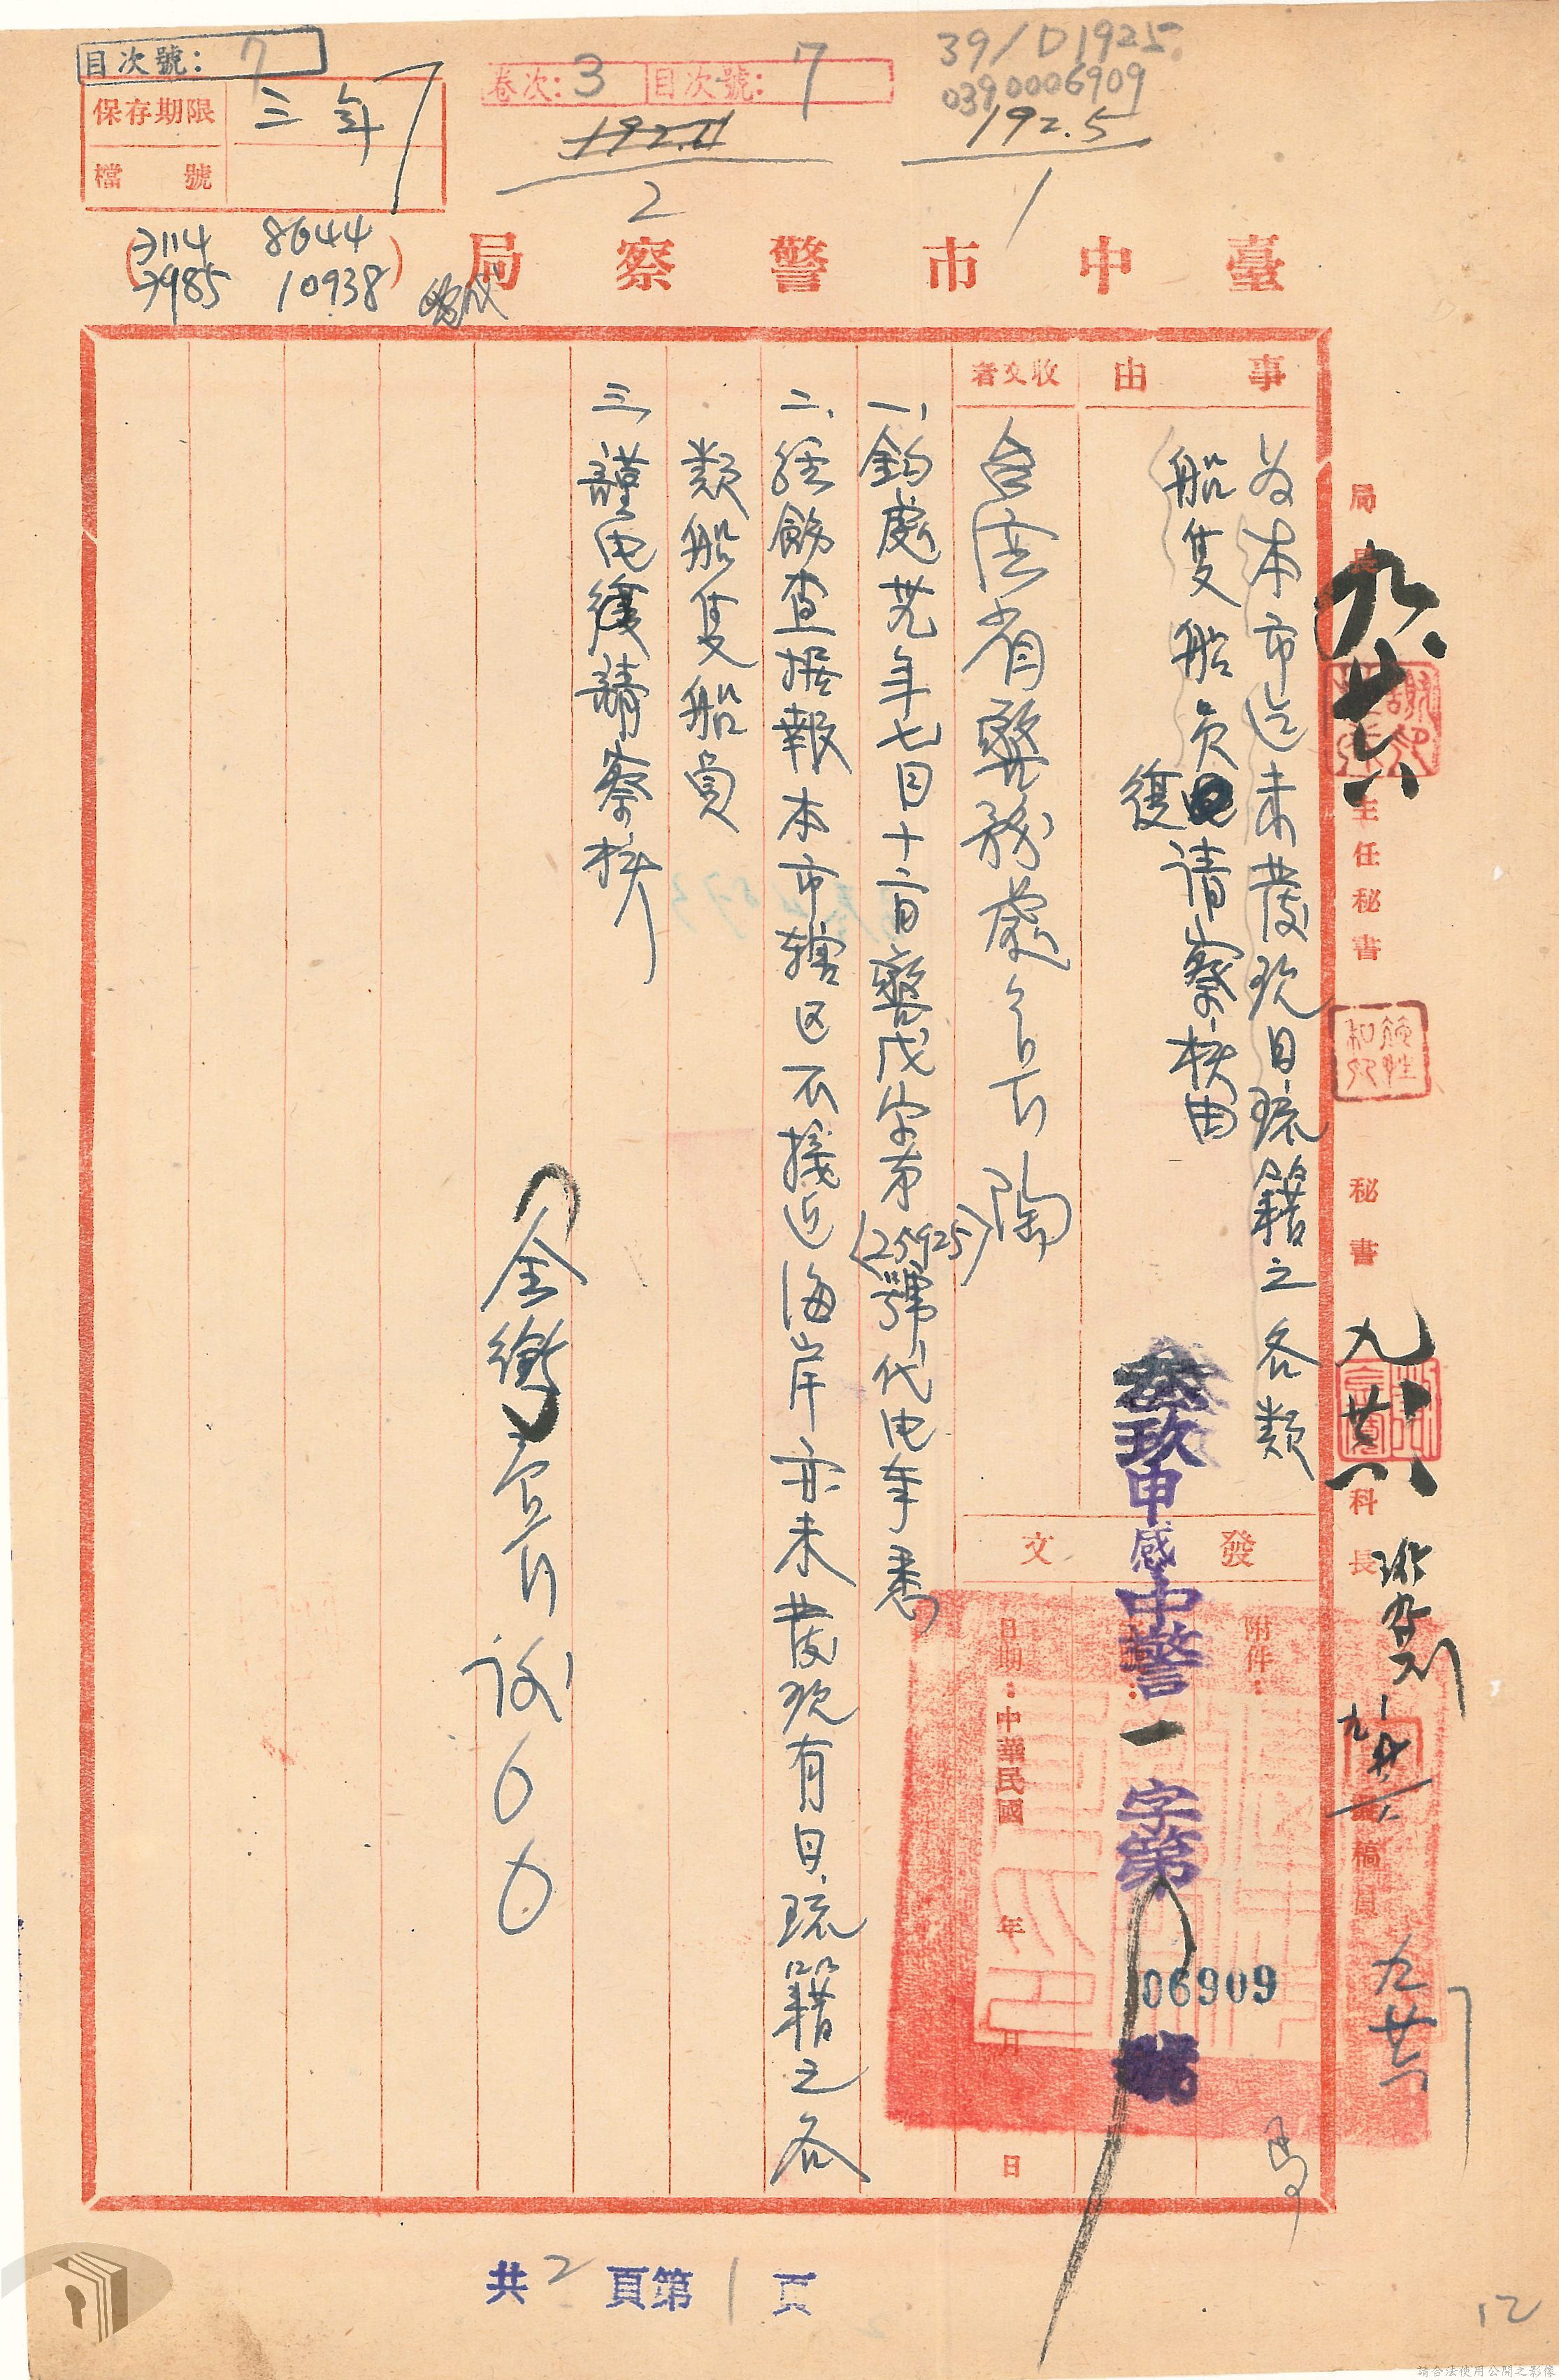 目次號：7
保存期限 三年
檔號
卷次：3 目次號：7
39/D1925
0390006909
192.5
1
192.11
2
7114 8644
7985 10938
臺中市警察局
事由
為本市迄未發現日琉籍之各類
船隻船員電復請察核由
收文者
台灣省警務處處長陶
發文
附件：
日期：中華民國 年 月 日
叁玖申感中警一字第06909號
一、鈞處 年七月十 日警戊字第(25925)號代电奉悉
二、經飭查据報本市轄区不接近海岸亦未發現有日琉籍之各
類船隻船員
三、謹电復請察核
全銜局長
局長
主任秘書
秘書
科長
稿員
共2頁第1頁
12
請合法使用公開之影像